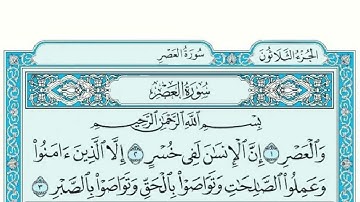 الجزء الثلاثون
سورة العصر
سورة العصر
بِسْمِ اللَّهِ الرَّحْمَٰنِ الرَّحِيمِ
وَالْعَصْرِ ١ إِنَّ الْإِنسَانَ لَفِي خُسْرٍ ٢ إِلَّا الَّذِينَ ءَامَنُوا
وَعَمِلُوا الصَّالِحَاتِ وَتَوَاصَوْا بِالْحَقِّ وَتَوَاصَوْا بِالصَّبْرِ ٣